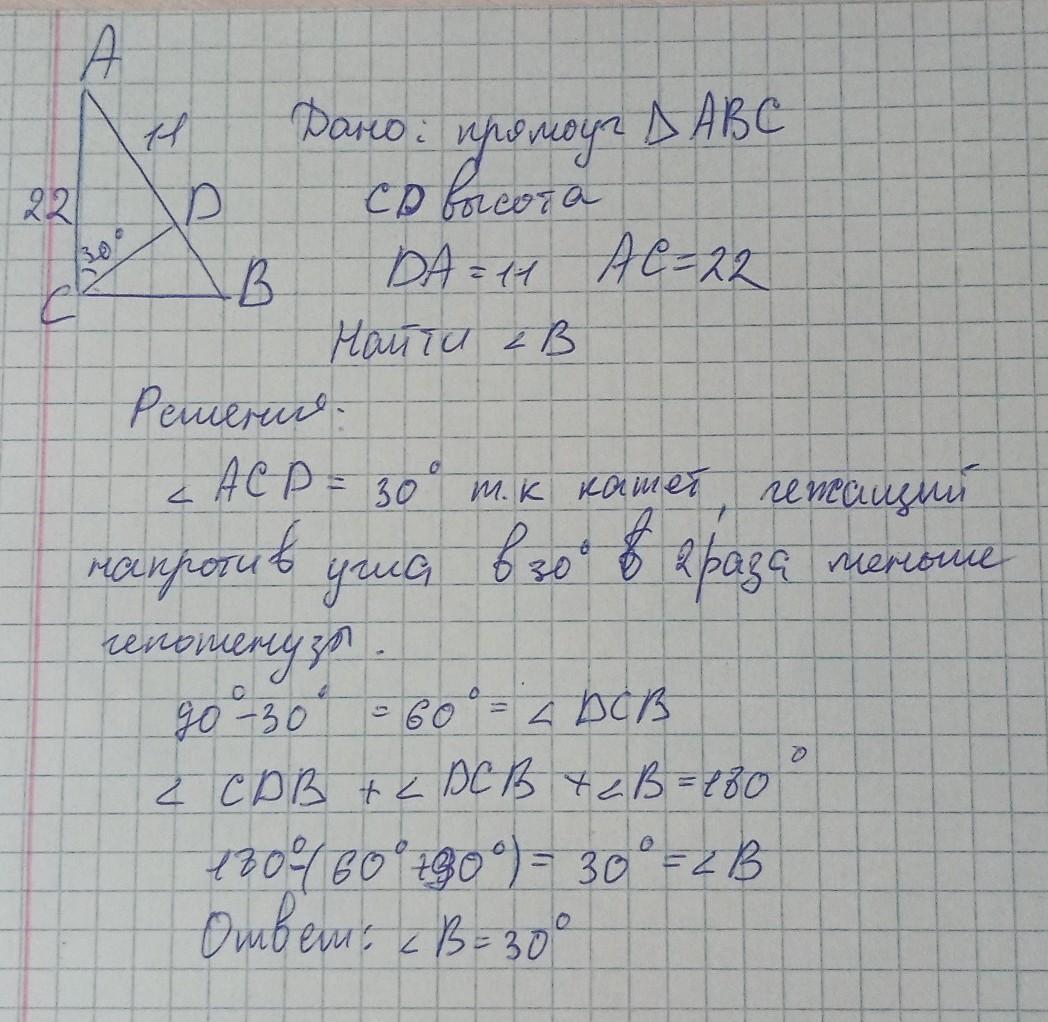 A
11
Дано: прямоуг Δ ABC
22
D
CD высота
30°
DA = 11 AC = 22
C
B
Найти ∠B
Решения:
∠ ACD = 30° т.к катет, лежащий
напротив угла в 30° в 2 раза меньше
гепотенузы.
90° - 30° = 60° = ∠ DCB
∠ CDB + ∠ DCB + ∠B = 180°
180° - (60° + 90°) = 30° = ∠B
Ответ: ∠B = 30°